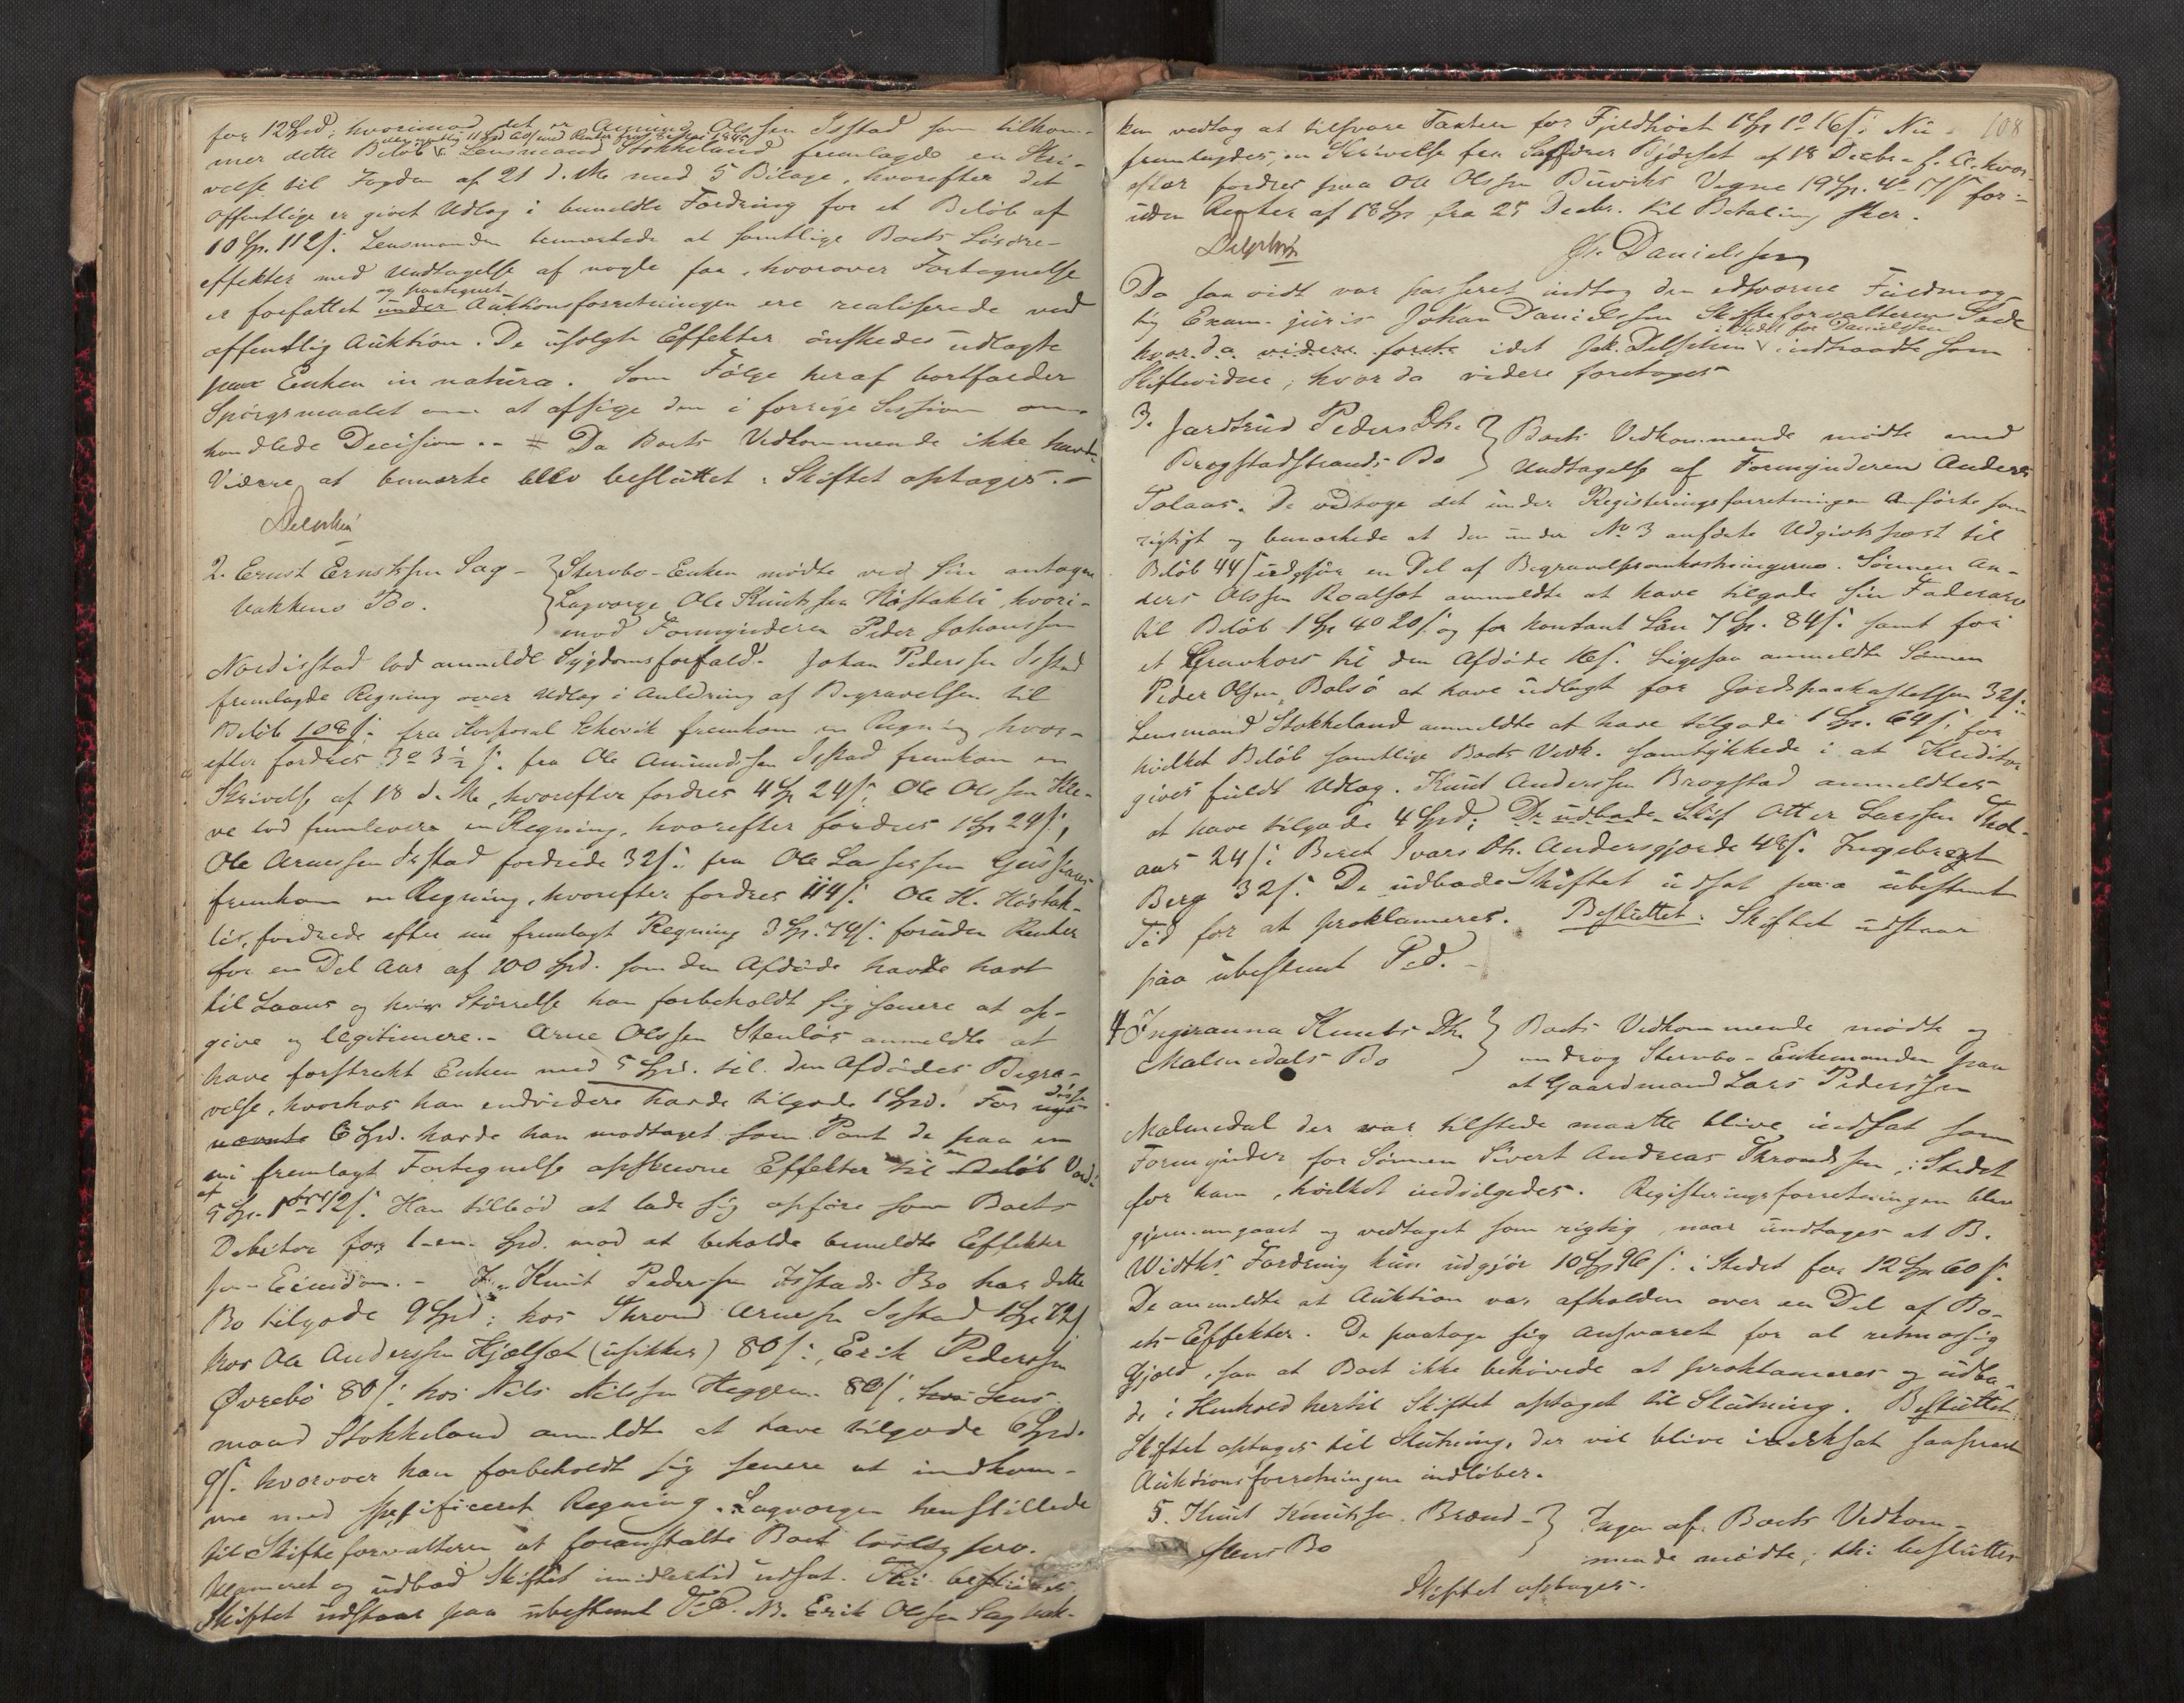 for 12 Spd; hvorimod det er Amund Olsen Isstad som tilkom-
mer dette Beløb. Lensmand Stokkeland fremlagde en Skri-
velse til Fogden af 21 d. M. med 5 Bilage, hvorefter det
Offentlige er givet Udlæg i bemeldte Fordring for et Beløb af
10 Sp. 112 s. Lensmanden bemærkede at samtlige Boets Løsøre-
effekter med Undtagelse af nogle faa, hvorover Fortegnelse
og paategnet
er forfattet under Auktionsforretningen ere realiserede ved
offentlig Auktion. De usolgte Effekter ønskedes udlagte
Enken in natura. Som Følge heraf bortfalder
Spørgsmaalet om at afsige den i forrige Session om-
handlede Decision. - Da Boets Vedkommende ikke havde
Videre at bemærke blev besluttet: Skiftet optages. -
2. Ernst Ernstsen Sag-
vakkens Bo.
Stervbo-Enken mødte ved sin antagne
Lagværge Ole Knutssen Høstakli, hvori-
mod Formynderen Peder Johanssen
Nordisstad lod anmelde Sygdomsforfald. Johan Pederssen Isstad
fremlagde Regning over Udlæg i Anledning af Begravelsen til
Beløb 108 s. fra Korporal Ekervik fremkom en Regning hvor-
efter fordres 3 o 3 1/2 s. fra Ole Amundssen Isstad fremkom en
Skrivelse af 18 d. M., hvorefter fordres 4 Sp 24 s. Ole Olssen Kle-
ve lod fremlevere en Regning, hvorefter fordres 1 Sp 24 s.,
Ole Arnessen Isstad fordrede 32 s. fra Ole Lassessen
fremkom en Regning, hvorefter fordres 114 s. Ole K. Høstak-
lis, fordrede efter en fremlagt Regning 3 Sp. 74 s. foruden Renter
for en Del Aar af 100 Spd. som den Afdøde havde havt
til Laans og hvis Størrelse han forbeholdt sig senere at op-
give og legitimere. - Arne Olssen Stenløs anmeldte at
have forstrakt Enken med 5 Spd. til den Afdødes Begra-
velse, hvorhos han endvidere havde tilgode 1 Spd. For disse
nævnte 6 Spd. havde han modtaget som Pant de paa en
nu fremlagt Fortegnelse opskrevne Effekter til en Beløb Værdi
af
5 Sp. 1 ort 12 s. Han tilbød at lade sig opføre som Boets
Debitor for 1-en- Spd. mod at beholde bemeldte Effekter
som Eiendom. - I Knut Pederssen Isstads Bo har dette
Bo tilgode 9 Spd; hos Thrond Arnessen Isstad 1 Sp 72 s
hos Ole Anderssen Hjælset (usikker) 80 s., Erik Pederssen
Øvrebø 80 s. hos Nils Nilssen Heggem 80 s. hos Lens-
mand Stokkeland anmeldte at have tilgode 6 Spd.
9 s. hvorover han forbeholdt sig senere at indkom-
me med specificeret Regning. Lagværgen henstillede
til Skifteforvalteren at foranstalte Boet lovlig pro-
klameret og udbad Skiftet imidlertid udsat. Thi besluttet
Skiftet udstaar paa ubestemt Tid. NB. Erik Olssen Sagvak-
108
ken vedtog at tilsvare Taxten for Fjeldhøet 1 Sp 1 o 16 s. Nu
fremlagdes en Skrivelse fra Sagfører Bjørset af 18 Decbr. f. A. hvor-
efter fordres paa Ole Olssen Buviks Vegne 19 Sp. 4 o 17 s for-
uden Renter af 18 Sp fra 25 Decbr. til Betaling sker.
Danielssen
Da saa vidt var passeret indtog den edsvorne Fuldmæg-
tig Exam. juris Johan Danielssen Skifteforvalterens Sæde
i Stedet for Danielssen
hvor da videre forete idet Jak. Delphin indtraadte som
Skiftevidne; hvor da videre foretoges
3. Jardtrud Peders Dtr.
Brogstadstrands Bo
Boets Vedkommende mødte med
Undtagelse af Formynderen Anders
Tolaas. De vedtoge det under Registreringsforretningen Anførte som
rigtigt og bemærkede at den under No 3 anførte Udgiftspost til
Beløb 44 s udgjør en Del af Begravelsesomkostningerne. Sønnen An-
ders Olssen Roalset anmeldte at have tilgode sin Fadersarv
til Beløb 1 Sp 4 o 20 s. og for kontant Lån 7 Sp. 84 s. samt for
et Gravkors til den Afdøde 16 s. Ligesaa anmeldte Sønnen
Peder Olsen Bolsø at have udlagt for Jordspaakastelsen 32 s.
Lensmand Stokkeland anmeldte at have tilgode 1 Sp. 64 s. for
hvilket Beløb samtlige Boets Vedk. samtykkede i at Kreditor
gives fuldt Udlæg. Knut Anderssen Brogstad anmeldtes
at have tilgode 4 Spd; De udbade Skif Otter Larssen Thol-
aas 24 s. Beret Ivars Dtr. Andersgjerde 48 s. Ingebregt
Berg 32 s. De udbade Skiftet udsat paa ubestemt
Tid for at proklameres. Besluttet: Skiftet udstaar
paa ubestemt Tid. -
4 Ingeranna Knuts Dtr
Malmedals Bo
Boets Vedkommende mødte og
androg Stervbo-Enkemanden paa
at Gaardmand Lars Pederssen
Malmedal der var tilstede maatte blive indsat som
Formynder for Sønnen Sivert Andreas Throndssen, i Stedet
for ham, hvilket indvilgedes. Registreringsforretningen blev
gjennemgaaet og vedtaget som rigtig, naar undtages at B.
Widths Fordring kun udgjør 10 Sp 96 s. i Stedet for 12 Sp 60 s.
De anmeldte at Auktion var afholden over en Del af Bo-
ets Effekter. De paatoge sig Ansvaret for al retmæssig
Gjæld, saa at Boet ikke behøvede at proklameres og udba-
de i Henhold hertil Skiftet optaget til Slutning. Besluttet:
Skiftet optages til Slutning, der vil blive iverksat saasnart
Auktionsforretningen indløber.
5. Knut Knutssen Brænd-
stens Bo
Ingen af Boets Vedkom-
mende mødte; thi besluttes
Skiftet optages.